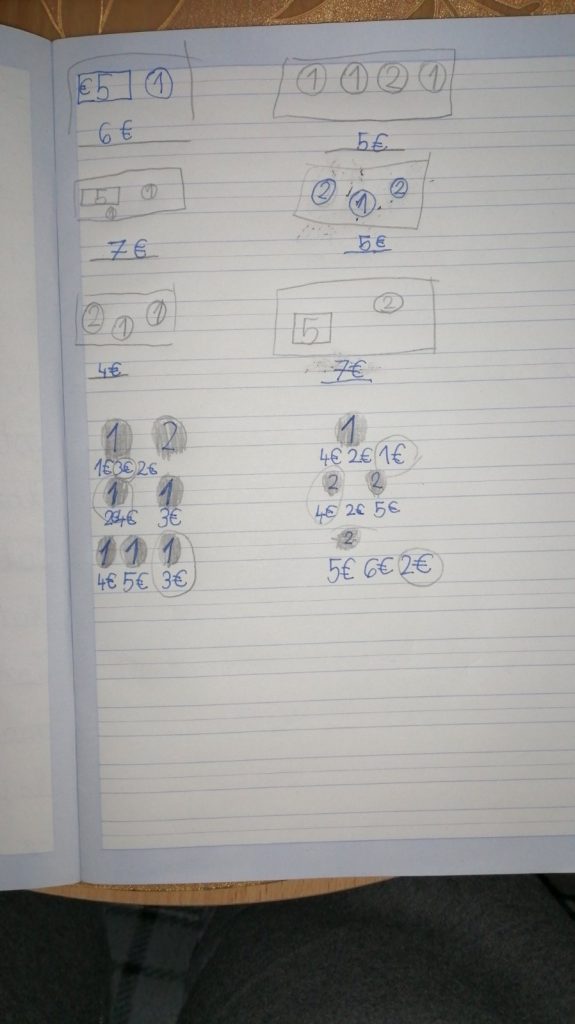 €5 1 1 1 2 1
6€ 5€
5 1 1 2 1 2
7€ 5€
2 1 1 5 2
4€ 7€
1 2 1
1€ 3€ 2€ 4€ 2€ 1€
1 1 2 2
4€ 3€ 4€ 2€ 5€
1 1 1 2
4€ 5€ 3€ 5€ 6€ 2€